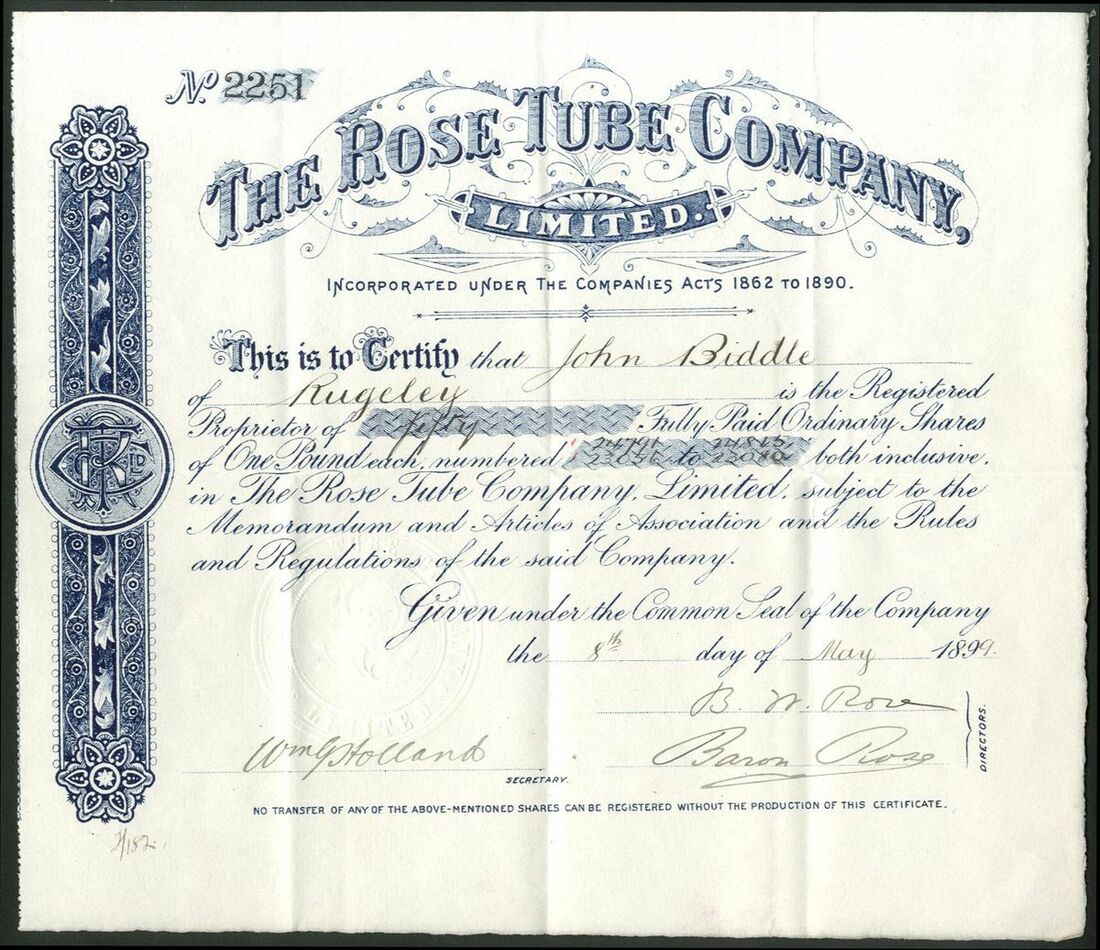 No 2251
THE ROSE TUBE COMPANY,
LIMITED.
INCORPORATED UNDER THE COMPANIES ACTS 1862 TO 1890.
This is to Certify that John Biddle
of Rugeley is the Registered
Proprietor of fifty Fully Paid Ordinary Shares
24791 to 24815
of One Pound each, numbered 23056 to 23080 both inclusive,
in The Rose Tube Company, Limited, subject to the
Memorandum and Articles of Association and the Rules
and Regulations of the said Company.
Given under the Common Seal of the Company
the 8th day of May 1899.
B. W. Rose
Wm G Holland Baron Rose
SECRETARY.
DIRECTORS.
NO TRANSFER OF ANY OF THE ABOVE-MENTIONED SHARES CAN BE REGISTERED WITHOUT THE PRODUCTION OF THIS CERTIFICATE.